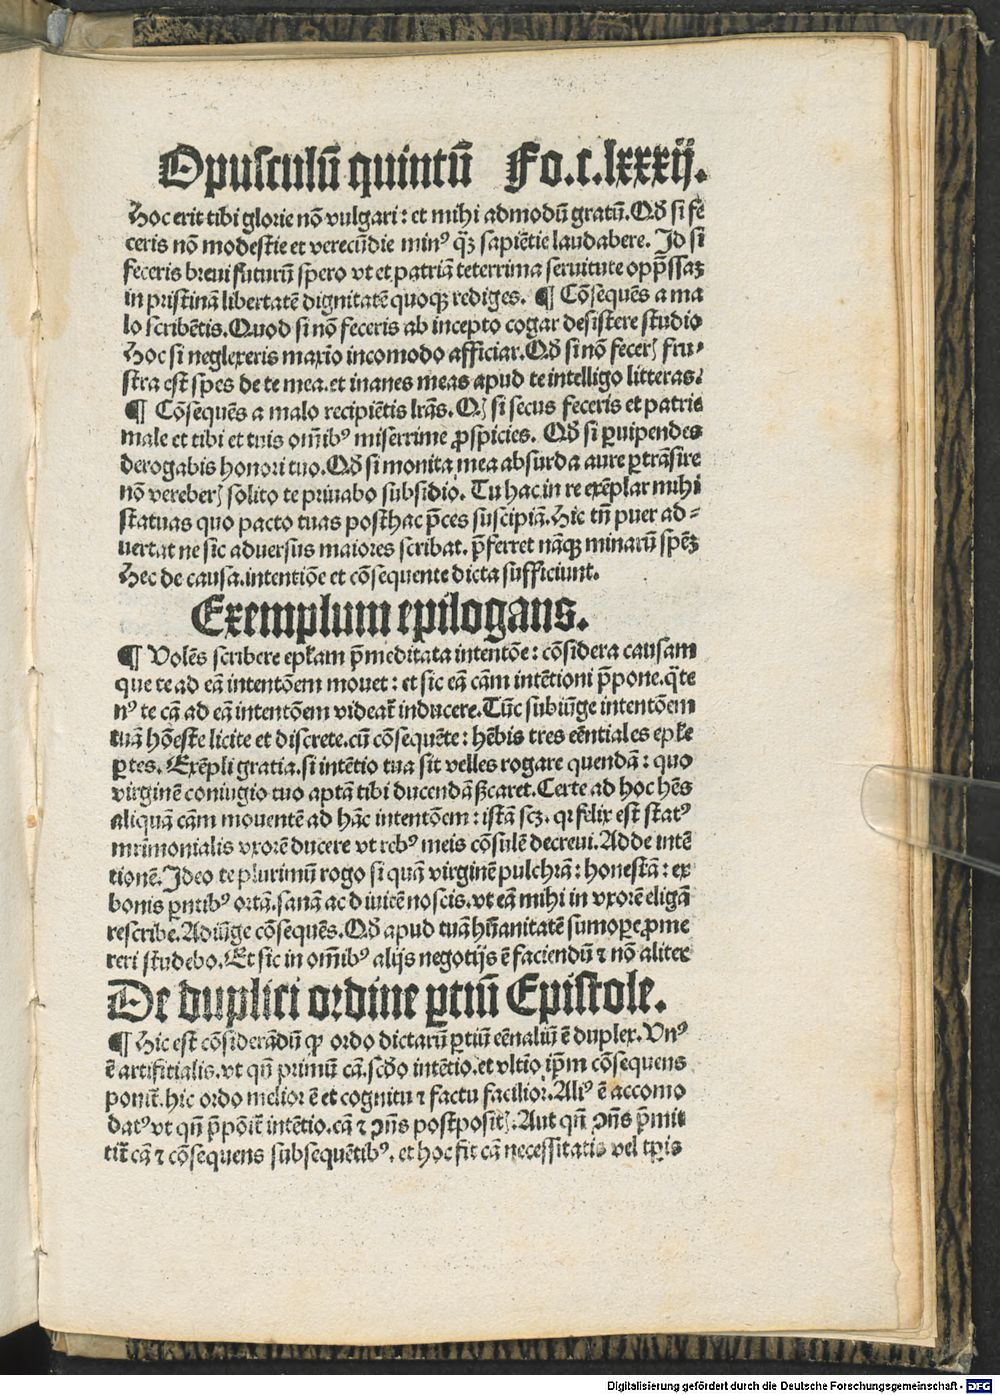 Opusculū quintū Fo.c.lxxxij.
Hoc erit tibi glorie nō vulgari: et mihi admodū gratū. Qð si fe
ceris nō modestie et verecūdie minꝰ qꝫ sapiētie laudabere. Id si
feceris breui futurū spero vt et patriā teterrima seruitute opp̄ssaꝫ
in pristinā libertatē dignitatē quoqꝫ rediges. ¶ Cōsequēs a ma
lo scribētis. Quod si nō feceris ab incepto cogar desistere studio
Hoc si neglexeris maxīo incomodo afficiar. Qð si nō fecerꝭ fru⸗
stra est spes de te mea. et inanes meas apud te intelligo litteras.
¶ Cōsequēs a malo recipiētis lr̄as. Qꝭ si secus feceris et patrie
male et tibi et tuis om̄ibꝰ miserrime ꝓspicies. Qð si ꝑuipendes
derogabis honori tuo. Qð si monita mea absurda aure ꝑtrāsire
nō vereberꝭ solito te priuabo subsidio. Tu hac in re exēplar mihi
statuas quo pacto tuas posthac p̄ces suscipiā. Hic tn̄ puer ad⸗
uertat ne sic aduersus maiores scribat. p̄ferret nāqꝫ minarū spēꝫ
Hec de causa. intentiōe et cōsequente dicta sufficiunt.
Exemplum epilogans.
¶ Volēs scribere ep̄lam p̄meditata intentōe: cōsidera causam
que te ad eā intentōem mouet: et sic eā cām intētioni p̄pone. q̄ te
nꝰ te cā ad eā intentōem videat̄ inducere. Tūc subiūge intentōem
tuā hōeste licite et discrete. cū cōsequēte: hēbis tres eēntiales ep̄le
ꝑtes. Exēpli gratia. si intētio tua sit velles rogare quendā: quo
virginē coniugio tuo aptā tibi ducendā ꝓcaret. Certe ad hoc hēs
aliquā cām mouentē ad hāc intentōem: istā scꝫ. qꝛ felix est statꝰ
mr̄imonialis vxorē ducere vt rebꝰ meis cōsulē decreui. Adde intē
tionē. Ideo te plurimū rogo si quā virginē pulchrā: honestā: ex
bonis ꝑntibꝰ ortā. sanā ac diuitē noscis. vt eā mihi in vxorē eligā
rescribe. Adiūge cōsequēs. Qð apud tuā hūanitatē sumoꝑe ꝓme
reri studebo. Et sic in om̄ibꝰ alijs negotijs ē faciendū ⁊ nō aliter
De duplici ordine ꝑtiū Epistole.
¶ Hic est cōsiderādū ꝙ ordo dictarū ꝑtiū eēnaliū ē duplex. Vnꝰ
ē artifitialis. vt qn̄ primū cā. scðo intētio. et vltīo ip̄m cōsequens
ponit̄. hic ordo melior ē et cognitu ⁊ factu facilior. Aliꝰ ē accomo
datꝰ vt qn̄ p̄pōit̄ intētio. cā ⁊ ꝯn̄s postpositꝭ. Aut qn̄ ꝯn̄s p̄mit
tit̄ cā ⁊ cōsequens subsequētibꝰ. et hoc fit cā necessitatis vel tꝑis
Digitalisierung gefördert durch die Deutsche Forschungsgemeinschaft - DFG